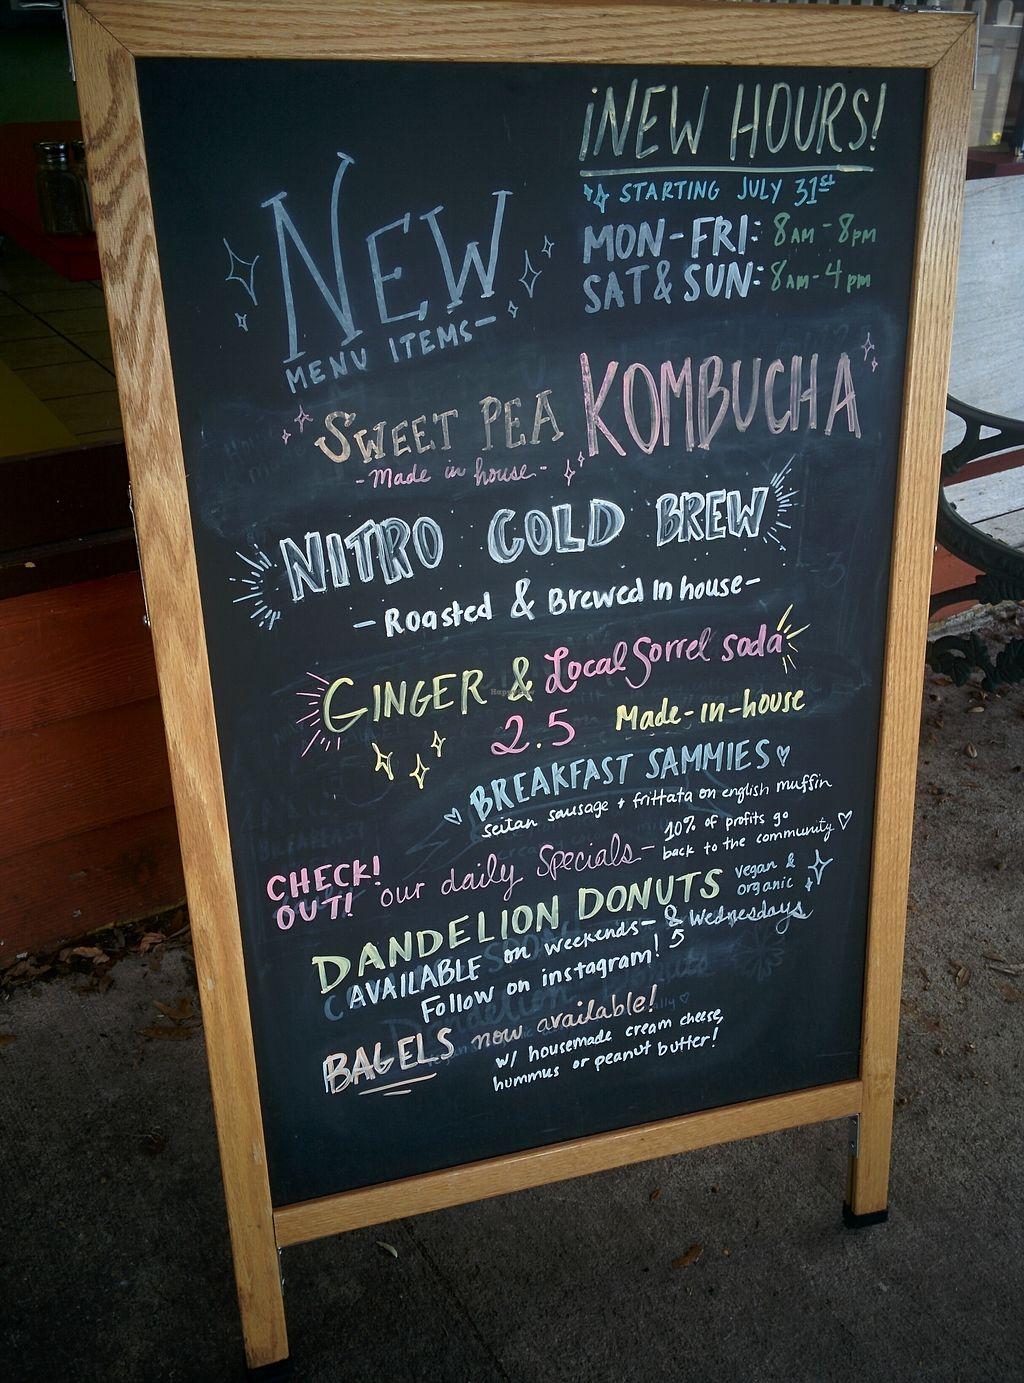 ¡NEW HOURS!
STARTING JULY 31st
MON-FRI: 8AM-8PM
SAT & SUN: 8AM-4PM
NEW
MENU ITEMS-
SWEET PEA KOMBUCHA
-Made in house-
NITRO COLD BREW
-Roasted & Brewed In house-
GINGER & Local Sorrel soda
2.5 Made-in-house
BREAKFAST SAMMIES
seitan sausage + frittata on english muffin
CHECK! OUT! our daily Specials- 10% of profits go back to the community
DANDELION DONUTS vegan & organic
AVAILABLE on weekends- & Wednesdays
Follow on instagram! 5
BAGELS now available!
w/ housemade cream cheese,
hummus or peanut butter!